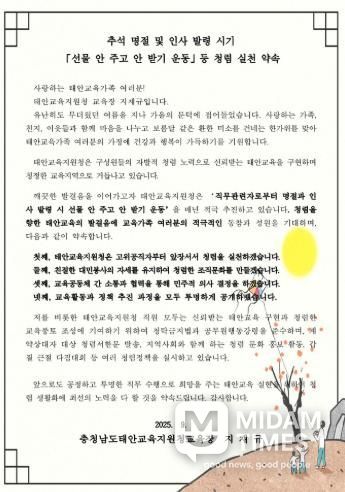 추석 명절 및 인사 발령 시기
「선물 안 주고 안 받기 운동」 등 청렴 실천 약속
사랑하는 태안교육가족 여러분!
태안교육지원청 교육장 지재규입니다.
유난히도 무더웠던 여름을 지나 가을의 문턱에 접어들었습니다. 사랑하는 가족,
친지, 이웃들과 함께 마음을 나누고 보름달 같은 환한 미소를 건네는 한가위를 맞아
태안교육가족 여러분의 가정에 건강과 행복이 가득하기를 기원합니다.
태안교육지원청은 구성원들의 자발적 청렴 노력으로 신뢰받는 태안교육을 구현하며
청정한 교육지역으로 거듭나고 있습니다.
깨끗한 발걸음을 이어가고자 태안교육지원청은 '직무관련자로부터 명절과 인
사 발령 시 선물 안 주고 안 받기 운동'을 매년 적극 추진하고 있습니다. 청렴을
향한 태안교육의 발걸음에 교육가족 여러분의 적극적인 동참과 성원을 기대하며,
다음과 같이 약속합니다.
첫째, 태안교육지원청은 고위공직자부터 앞장서서 청렴을 실천하겠습니다.
둘째, 친절한 대민봉사의 자세를 유지하여 청렴한 조직문화를 만들겠습니다.
셋째, 교육공동체 간 소통과 협력을 통해 민주적 의사 결정을 하겠습니다.
넷째, 교육활동과 정책 추진 과정을 모두 투명하게 공개하겠습니다.
저를 비롯한 태안교육지원청 직원 모두는 신뢰받는 태안교육 구현과 청렴한
교육풍토 조성에 기여하기 위하여 청탁금지법과 공무원행동강령을 준수하며, 계
약상대자 대상 청렴서한문 발송, 지역사회와 함께 하는 청렴 문화 홍보 활동, 갑
질 근절 다짐대회 등 여러 청렴정책을 실시하고 있습니다.
앞으로도 공정하고 투명한 직무 수행으로 희망을 주는 태안교육 실현을 위하여 청
렴 생활화에 최선의 노력을 다 할 것을 약속드립니다. 감사합니다.
2025. 9.
충청남도태안교육지원청교육장 지재규
MIDAM
TIMES
good news, good people